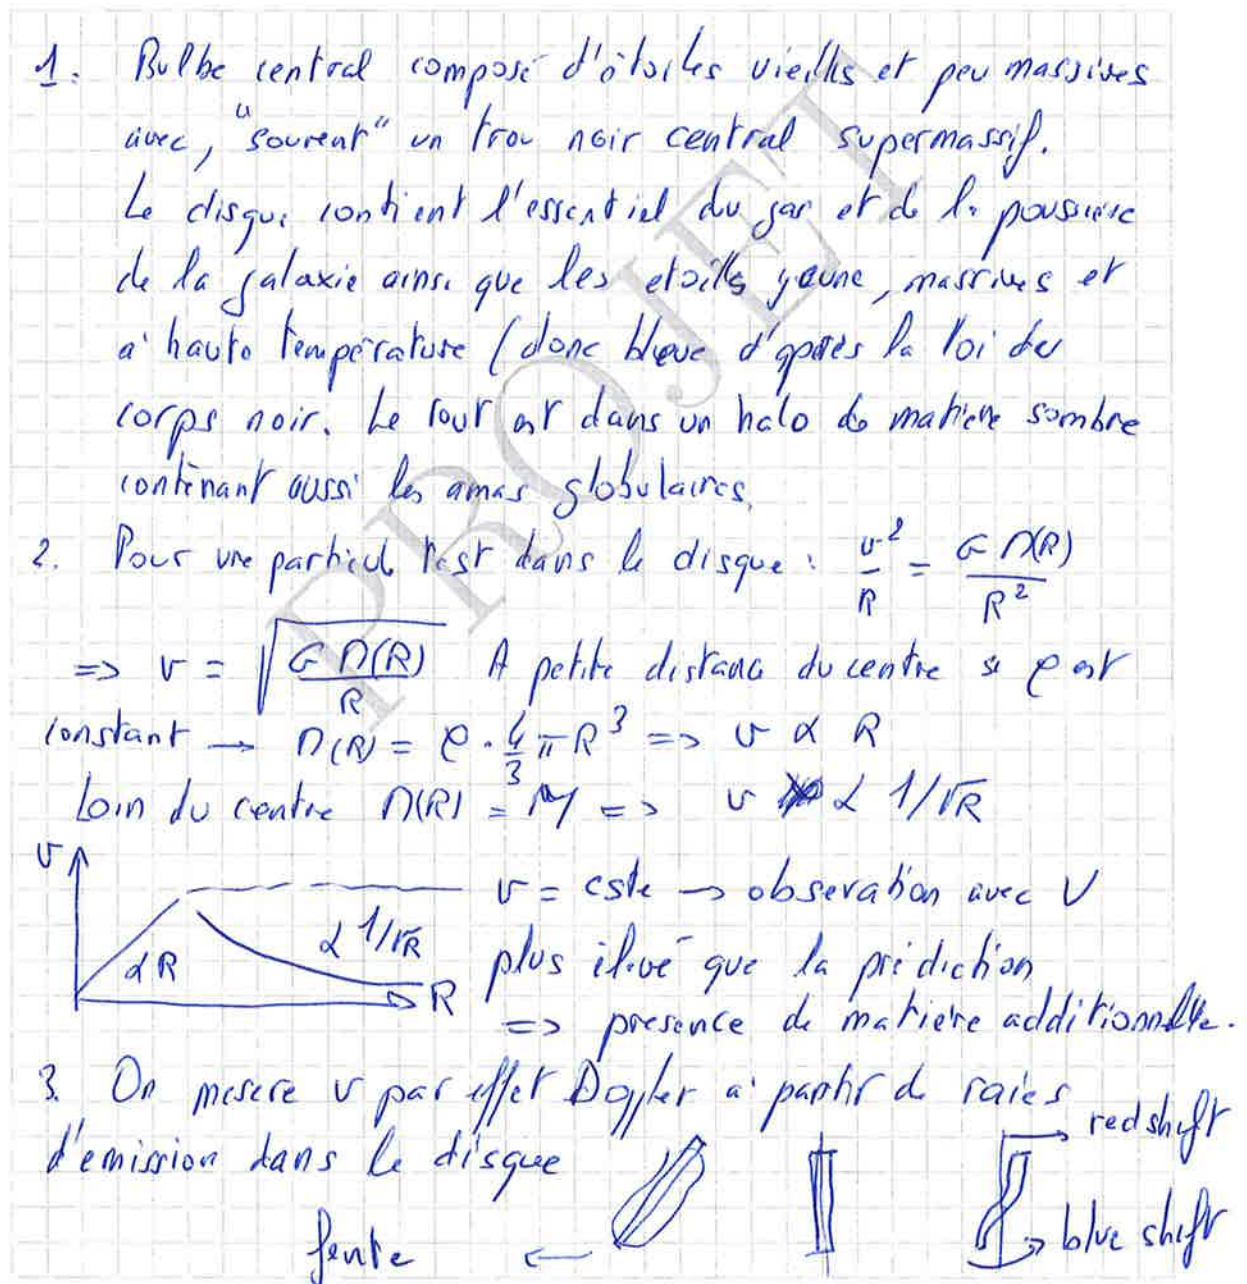 1. Bulbe central composé d'étoiles vieilles et peu massives
avec, "souvent" un trou noir central supermassif.
Le disque contient l'essentiel du gaz et de la poussière
de la galaxie ainsi que les etoiles jeune, massives et
à haute température (donc bleue d'après la loi du
corps noir. Le tout est dans un halo de matière sombre
contenant aussi les amas globulaires.
2. Pour une particule test dans le disque : v²/R = G M(R)/R²
=> v = √(G M(R)/R) A petite distance du centre si ρ est
constant → M(R) = ρ · 4/3 π R³ => v ∝ R
Loin du centre M(R) = M => v ∝ 1/√R
v
v = cste → observation avec V
∝ R
∝ 1/√R
R
plus élevé que la prédiction
=> presence de matière additionnelle.
3. On mesure v par effet Doppler à partir de raies
d'emission dans le disque
redshift
fente
←
blue shift
PROJET